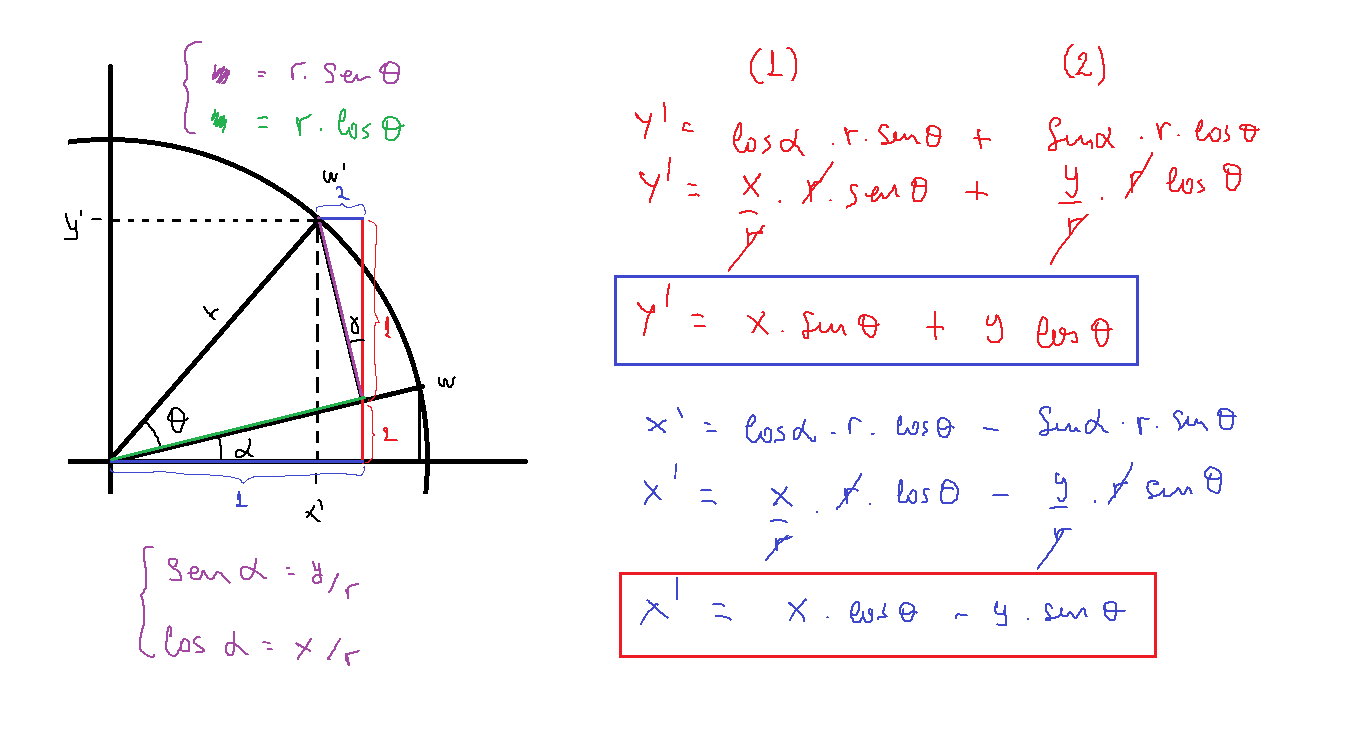 = r. sen θ
= r. cos θ
w'
2
y'
r
θ
α
γ
1
2
w
1
x'
sen α = y/r
cos α = x/r
(1) (2)
Y' = cosα . r. senθ + sinα . r. cosθ
Y' = x/r . r. senθ + y/r . r cosθ
Y' = x. sinθ + y cosθ
x' = cosα . r. cosθ - sinα . r. sinθ
x' = x/r . r. cosθ - y/r . r sinθ
x' = x. cosθ - y. sinθ